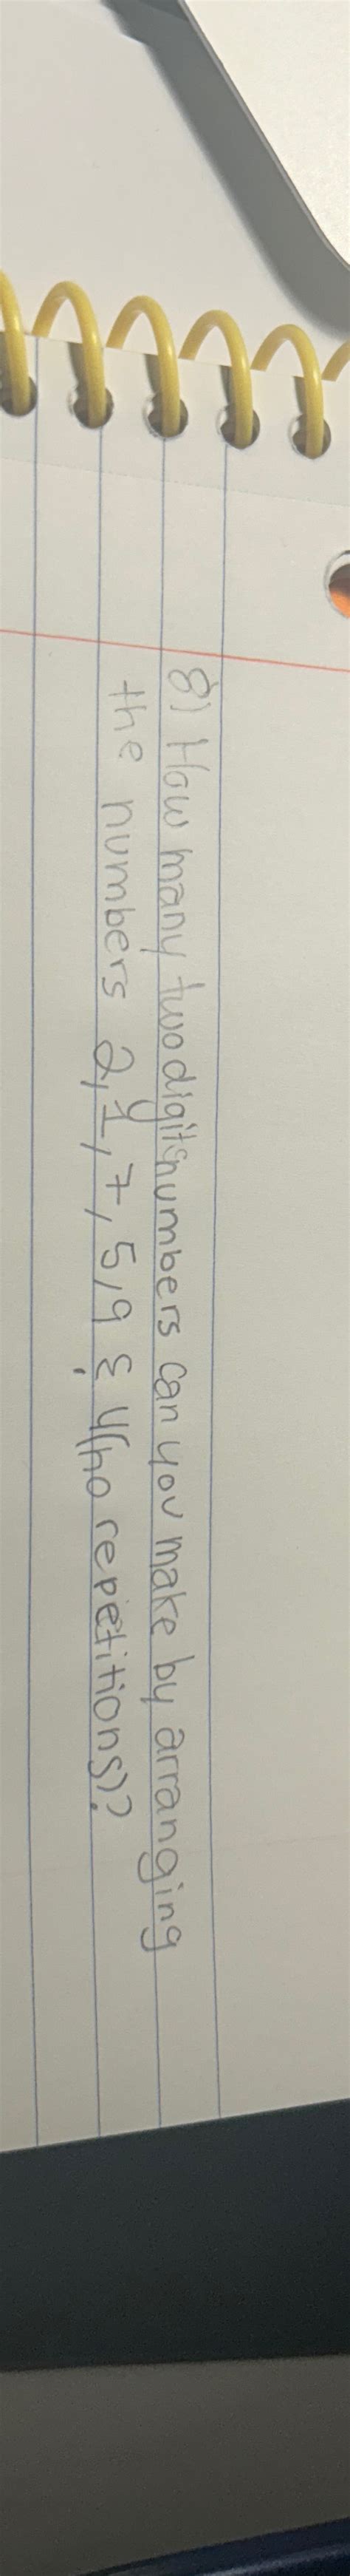 8) How many two digits numbers can you make by arranging
the numbers 2, 1, 7, 5, 9 & 4 (no repetitions)?